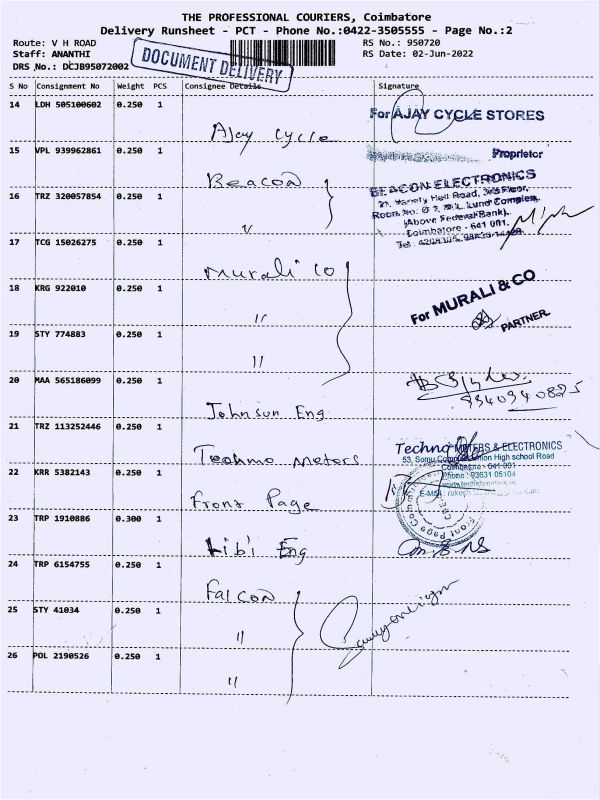 THE PROFESSIONAL COURIERS, Coimbatore
Delivery Runsheet - PCT - Phone No.:0422-3505555 - Page No.:2
Route: V H ROAD
RS No.: 950720
Staff: ANANTHI
RS Date: 02-Jun-2022
DRS No.: DCJB95072002
DOCUMENT DELIVERY
S No Consignment No Weight PCS Consignee Details Signature
14 LDH 505100602 0.250 1
For AJAY CYCLE STORES
Ajay Cycle
15 VPL 939962861 0.250 1
Proprietor
Beacon
BEACON ELECTRONICS
16 TRZ 320057854 0.250 1
(Above Federal Bank),
Coimbatore - 641 001.
〃
17 TCG 15026275 0.250 1
Murali Co
18 KRG 922010 0.250 1
For MURALI & CO
PARTNER
〃
19 STY 774883 0.250 1
〃
20 MAA 565186099 0.250 1
Johnsun Eng
21 TRZ 113252446 0.250 1
Techno METERS & ELECTRONICS
Techno Meters
Coimbatore - 641 001
22 KRR 5382143 0.250 1
Phone : 93631 05104
Front Page
23 TRP 1910886 0.300 1
Libi Eng
24 TRP 6154755 0.250 1
Falcon
25 STY 41034 0.250 1
〃
26 POL 2190526 0.250 1
〃